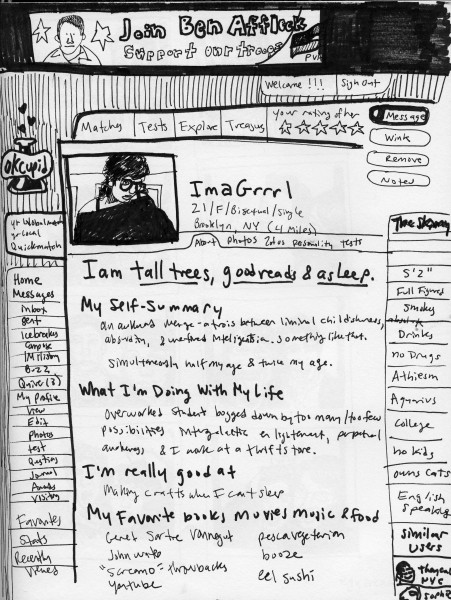 Join Ben Affleck
Support our troops
Welcome !!! Sign out
Matches Tests Explore
your rating of her
Message
Wink
Remove
Notes
okcupid
ImaGrrrl
21/F/Bisexual/Single
Brooklyn, NY (4 Miles)
About photos personality tests
I am tall trees, good reads & asleep.
My Self-Summary
an awkward between liminal childishness,
absurdity, & something like that.
Simultaneously half my age & twice my age.
What I'm Doing With My Life
Overworked student bogged down by too many/too few
possibilities perpetual
awkwardness & I work at a thrift store.
I'm really good at
Making crafts when I can't sleep
My Favorite books movies music & food
Genet Sartre Vonnegut
John Waters
"Screamo" throwbacks
Youtube
pescavegetarian
booze
eel sushi
Local
Quickmatch
Home
Messages
inbox
sent
Icebreaks
compose
IM History
Quiver (3)
My Profile
View
Edit
Photos
test
Questions
Journal
Awards
Visitors
Favorites
Stats
Recently
Views
The Skinny
5'2"
Full Figured
Smokes
Drinks
no Drugs
Athiesm
Aquarius
College
no kids
owns Cats
English
Speaking
Similar
Users
NYC